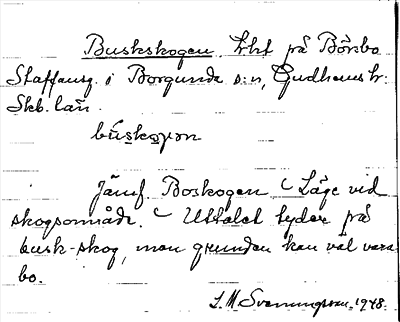 Buskskogen, trkt på Börsbo
Staffansg. i Borgunda s:n, Gudhems hr:
Skb. län.
búskoɡən
Jämf. Boskogen – Läge vid
skogsområde. – Uttalet tyder på
busk-skog, men grunden kan väl vara
bo.
S. M Svenningsson. 1948.